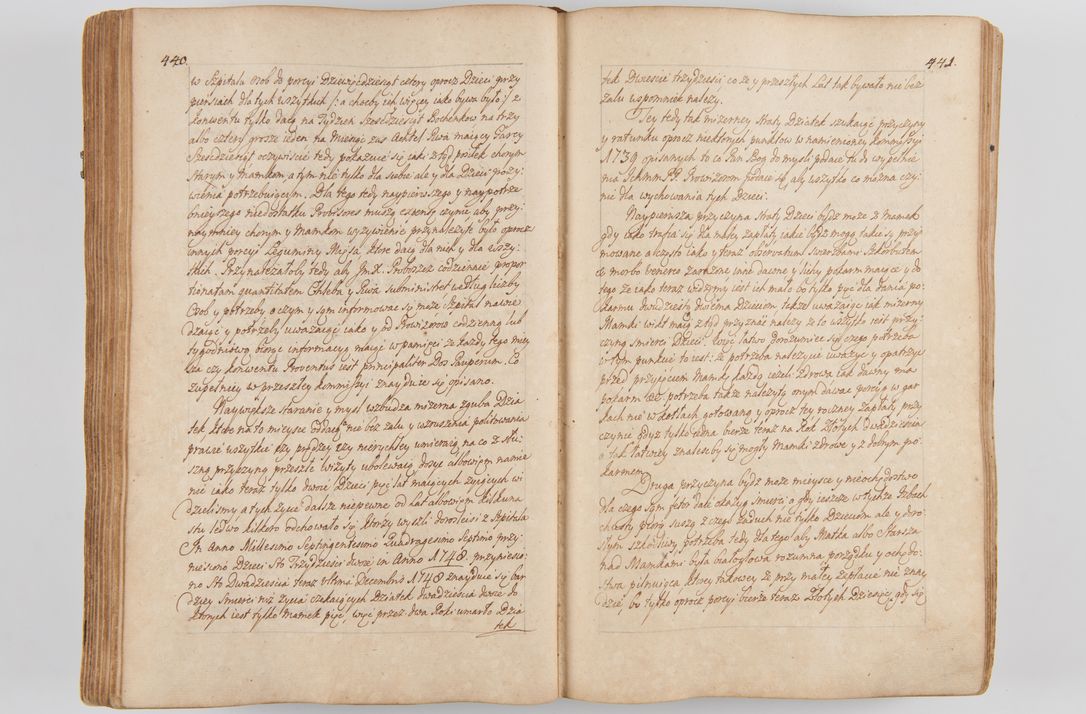 440.
w Szpitalu osob do porcyi Dziewięćdziesiąt cztery oprocz Dzieci przy
piersiach dla tych wszytkich /: a choćby ich więcey iako bywa było :/ z
konwentu tylko daią na Tydzien Sześćdziesiąt Bochenkow na trzy
albo cztery grosze ieden na Miesiąc zaś Achtel Piwa maiący Garcy
Sześćdziesiąt oczywiście tedy pokazuie się iaki ztąd posiłek chorym
starym y Mamkom a tym nie tylko dla siebie ale y dla Dzieci poży-
wienia potrzebuiącym. Dla tego tedy naypierwszego y naypotrze
bnieyszego niedostatku Provisores muszą expensę czynić aby przy
naymniey chorym y Mamkom wyzywienie przynależyte było oprocz
innych porcyi Leguminy Mięsa, ktore daią dla nich y dla wszy-
tkich. Przynależałoby tedy aby Jm X. Proboszcz codziennie propor
tionatam quantitatem Chleba y Piwa subministret według liczby
Osob y potrzeby o czym y sam informować się może Szpital nawie
dzaiąc y potrzeby uważaiąc iako y od Prowizorow codzienną lub
tygodniową biorąc informacyą maiąc w pamięci że każdy tego miey
sca czy konwentu Proventus iest principaliter Dos Pauperum. Co
zupełniey w przeszłey kommissyi znayduie się opisano.
Naywiększe staranie y mysl wzbudza mizerna zguba Dzia
tek, ktore na to mieysce oddaią nie bez żalu y wzruszenia politowania
prawie wszytkie czy prędzey czy nierychley umieraią na co z słu-
szną przyczyną przeszłe wizyty ubolewaią dosyć albowiem nawie
nie iako teraz tylko dwoie Dzieci pięć lat maiących żyiących wi
dzieliśmy a tych życie dalsze niepewne od lat albowiem kilkuna
stu ledwo kilkoro odchowało się ktorzy wyszli dorośleisi z Szpitala
In Anno Millesimo Septingentesimo Quadragesimo Septimo przy-
niesiono Dzieci Sto Trzydzieści dwoie in Anno 1748 przyniesio-
no Sto Dwadzieścia teraz ultima Decembris 1748 znayduie się bar
dziey śmierci niż życia czekaiących Dziatek dwadzieścia dwoie do
ktorych iest tylko Mamek pięć, więc przez dwa Roki umarło Dzia
tek
441.
tek Dwieście trzydzieści co że y przeszłych Lat tak bywało nie bez
żalu wspomniec należy.
Tey tedy tak mizerney straty Dziatek szukaiąc przyczyny
y ratunku oprocz niektorych punktow w namienioney kommissyi
1739 opisanych to co Pan Bog do mysli podaie tu do wypełnie
nia Ichmm PP. Prowizorom podaie się, aby wszytko co można czy-
nić dla wychowania tych Dzieci.
Naypierwsza przyczyna straty Dzieci bydź może z Mamek
gdy iako trafia się dla małey zapłaty iakie bydź mogą takie są przy
mowane a często iako y teraz observatum Swierzbami Szkorbutem
& morbo venereo zarażone inne dawne y lichy pokarm maiące y do
tego że iako teraz widzemy iest ich mało bo tylko pięć dla dania po
karmu dwudziestu dwoiema Dzieciom, także uważaiąc iak mizerny
Mamki wikt maią ztąd przyznać należy że to wszytko iest przy-
czyną śmierci Dzieci. Więc łatwo dorozumieć się czego potrzeba
w tym punkcie to iest: że potrzeba należycie uważyć y opatrzyć
przed przyięciem Mamkę każdą ieżeli zdrowa iak dawny ma
pokarm też potrzeba także należyty onym dawać porcye w gar
kach nie w kotłach gotowaną y oprocz tey roczney zapłaty przy
czynić gdyż tylko iedna bierze teraz na Rok Złotych dwadzieścia
a tak łatwiey znalesć by się mogły Mamki zdrowe y z dobrym po-
karmem.
Druga przyczyna bydź może mieysce y nieochędostwo
dla czego sam fetor dalć okazyą śmierci o gdy ieszcze w tychże Izbach
chusty piorą suszą z czego zaduch nie tylko Dzieciom ale y doro-
słym szkodliwy, potrzeba tedy dla tego aby Matka albo Starsza
nad Mamkami była białogłowa rozumna porządku y ochędo-
stwa pilnuiąca ktorey takowey że przy małey zapłacie nie znay
dzie, bo tylko oprocz porcyi bierze teraz Złotych Dziesięć, gdy się